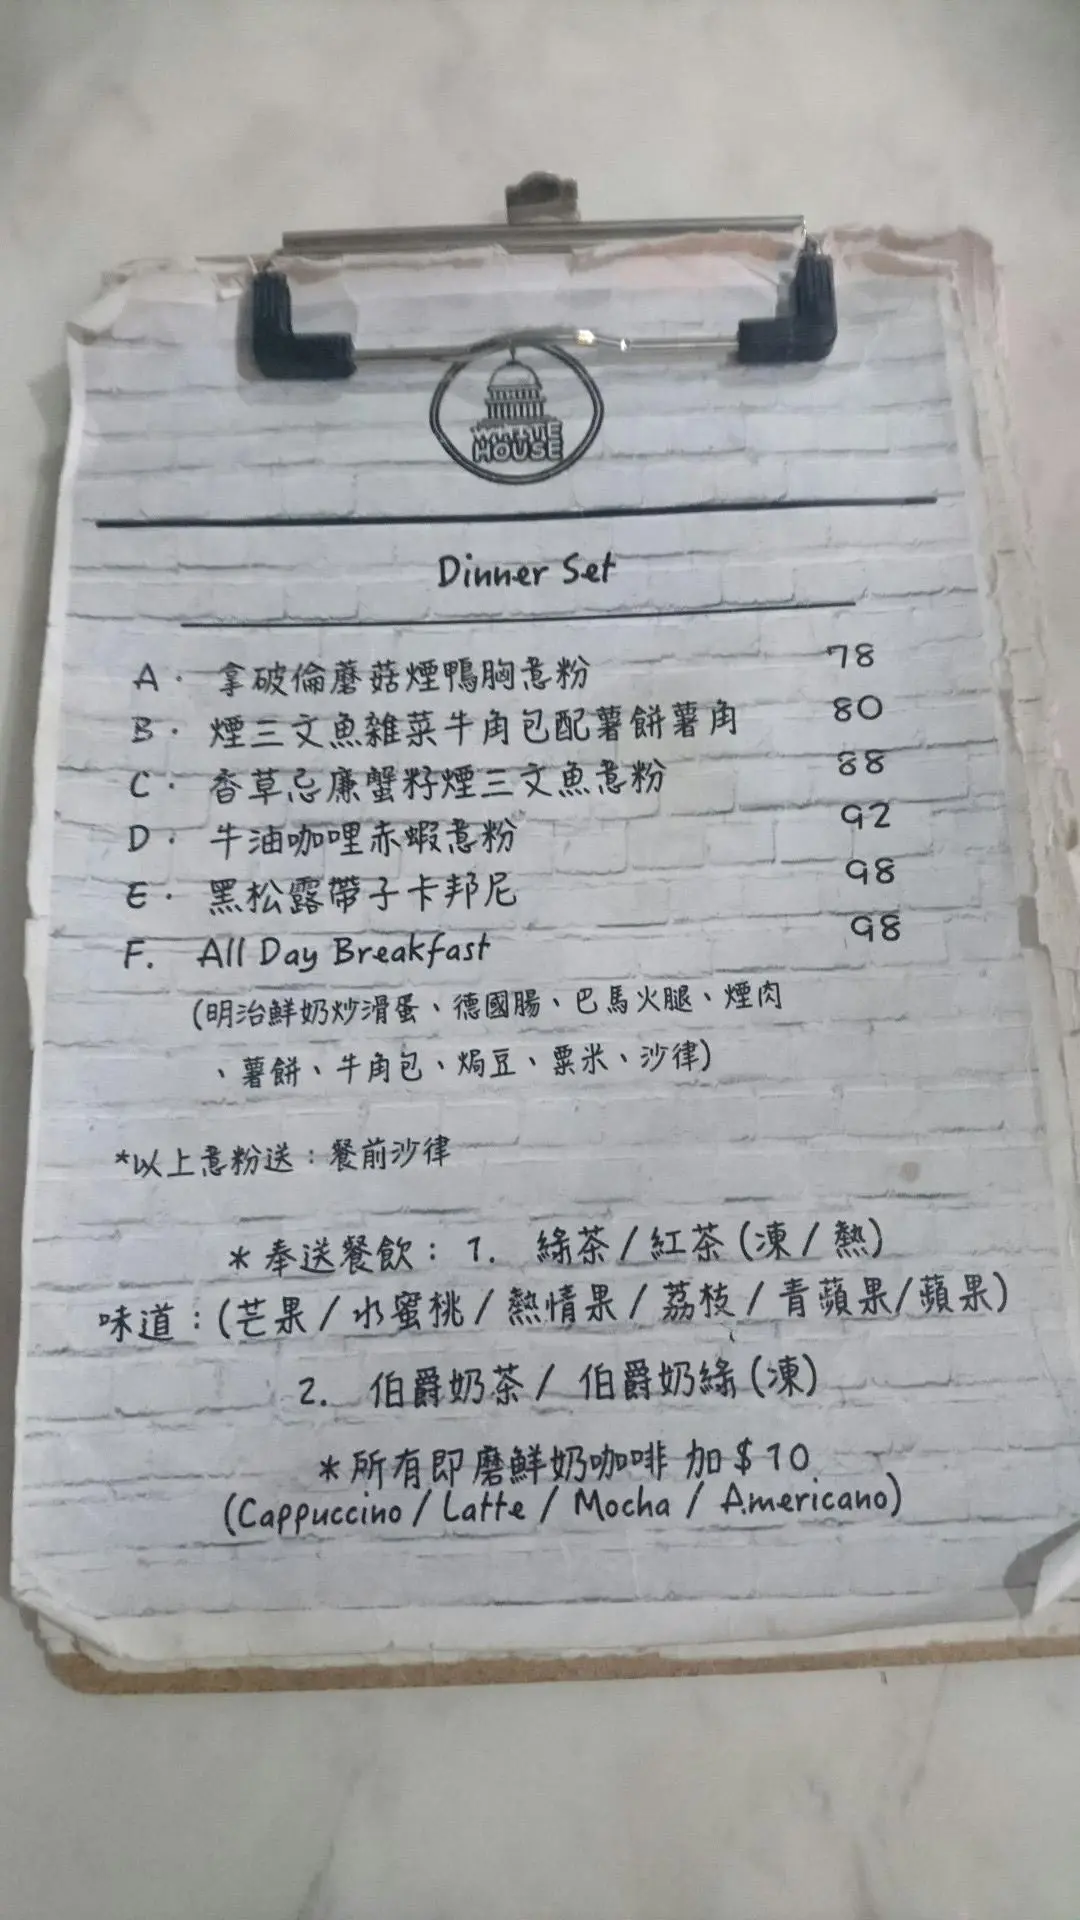 WHITE
HOUSE
Dinner Set
A. 拿破倫蘑菇煙鴨胸意粉 78
B. 煙三文魚雜菜牛角包配薯餅薯角 80
C. 香草忌廉蟹籽煙三文魚意粉 88
D. 牛油咖哩赤蝦意粉 92
E. 黑松露帶子卡邦尼 98
F. All Day Breakfast 98
(明治鮮奶炒滑蛋、德國腸、巴馬火腿、煙肉
、薯餅、牛角包、焗豆、粟米、沙律)
*以上意粉送：餐前沙律
*奉送餐飲：1. 綠茶/紅茶(凍/熱)
味道：(芒果/水蜜桃/熱情果/荔枝/青蘋果/蘋果)
2. 伯爵奶茶/伯爵奶綠(凍)
*所有即磨鮮奶咖啡 加$10
(Cappuccino/Latte/Mocha/Americano)